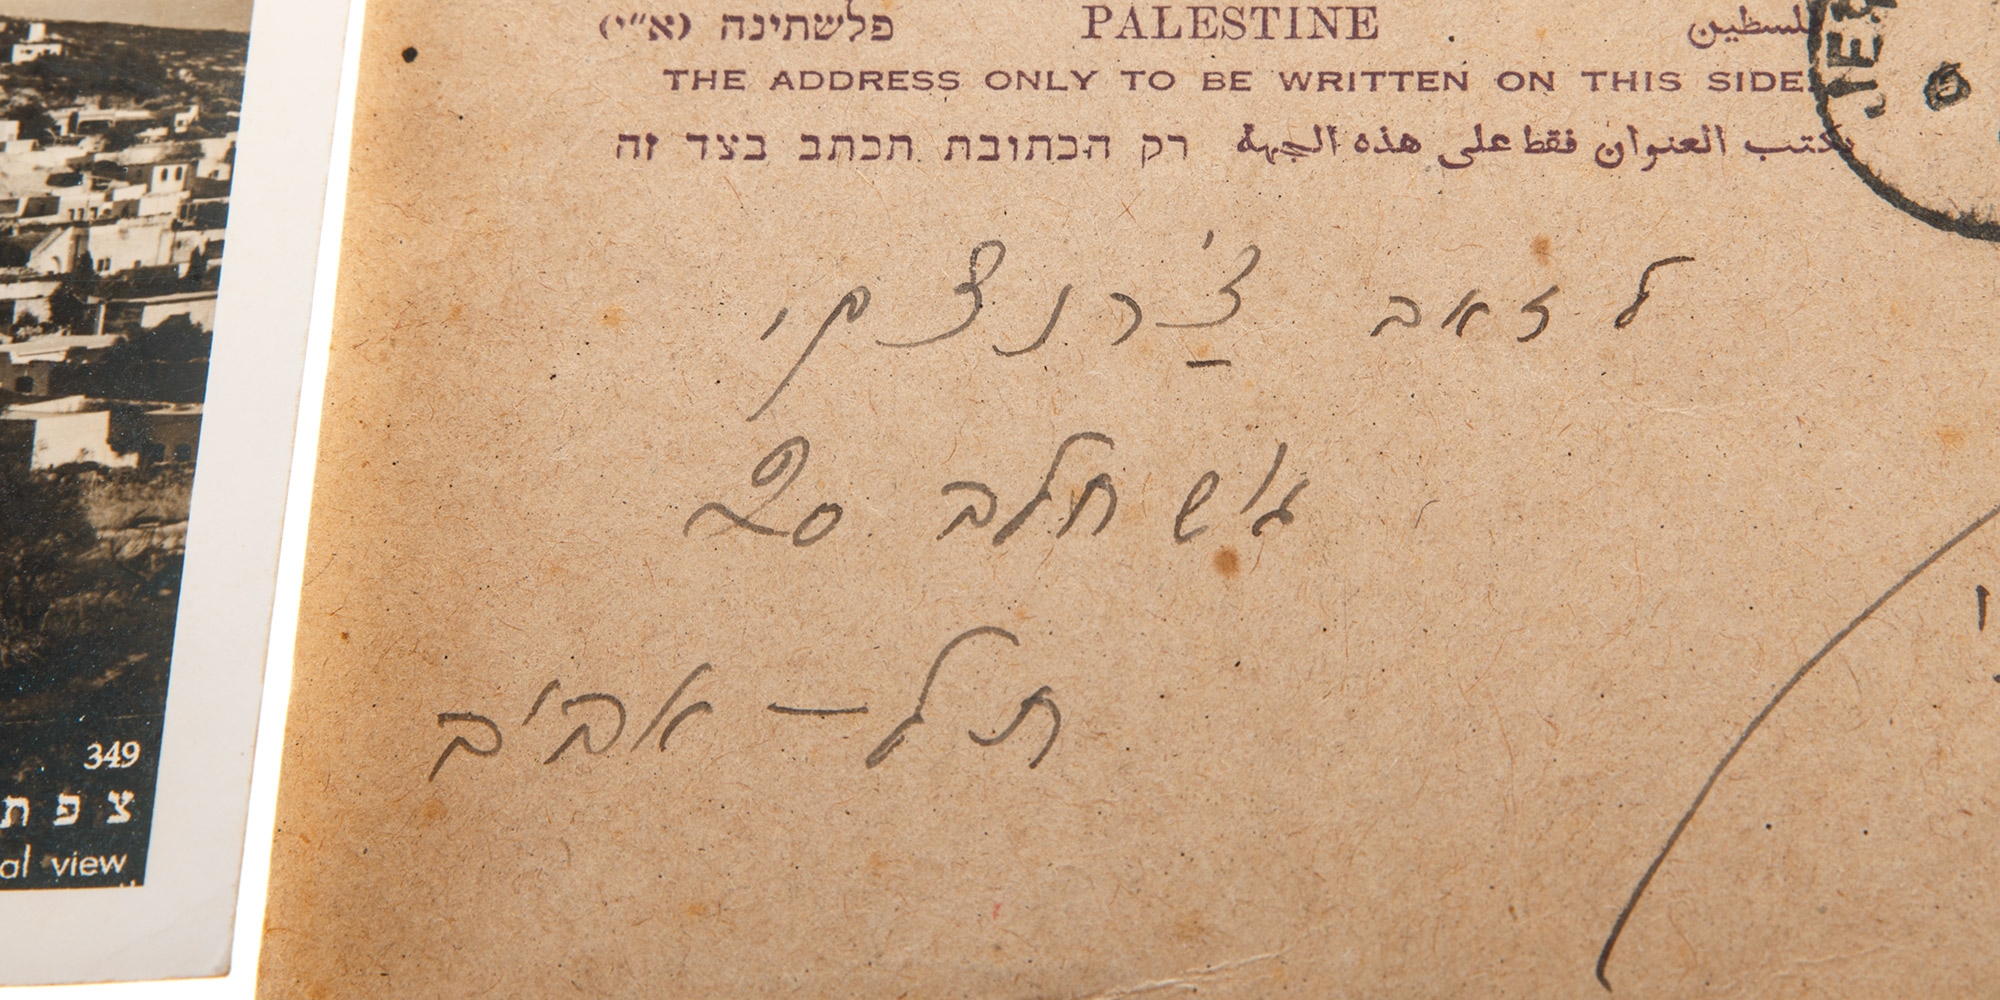 349
צפת
al view
פלשתינה (א״י) PALESTINE فلسطين
THE ADDRESS ONLY TO BE WRITTEN ON THIS SIDE
רק הכתובת תכתב בצד זה يكتب العنوان فقط على هذه الجهة
JER
ל זאב צ'רנצקי
גוש חלב 20
תל — אביב